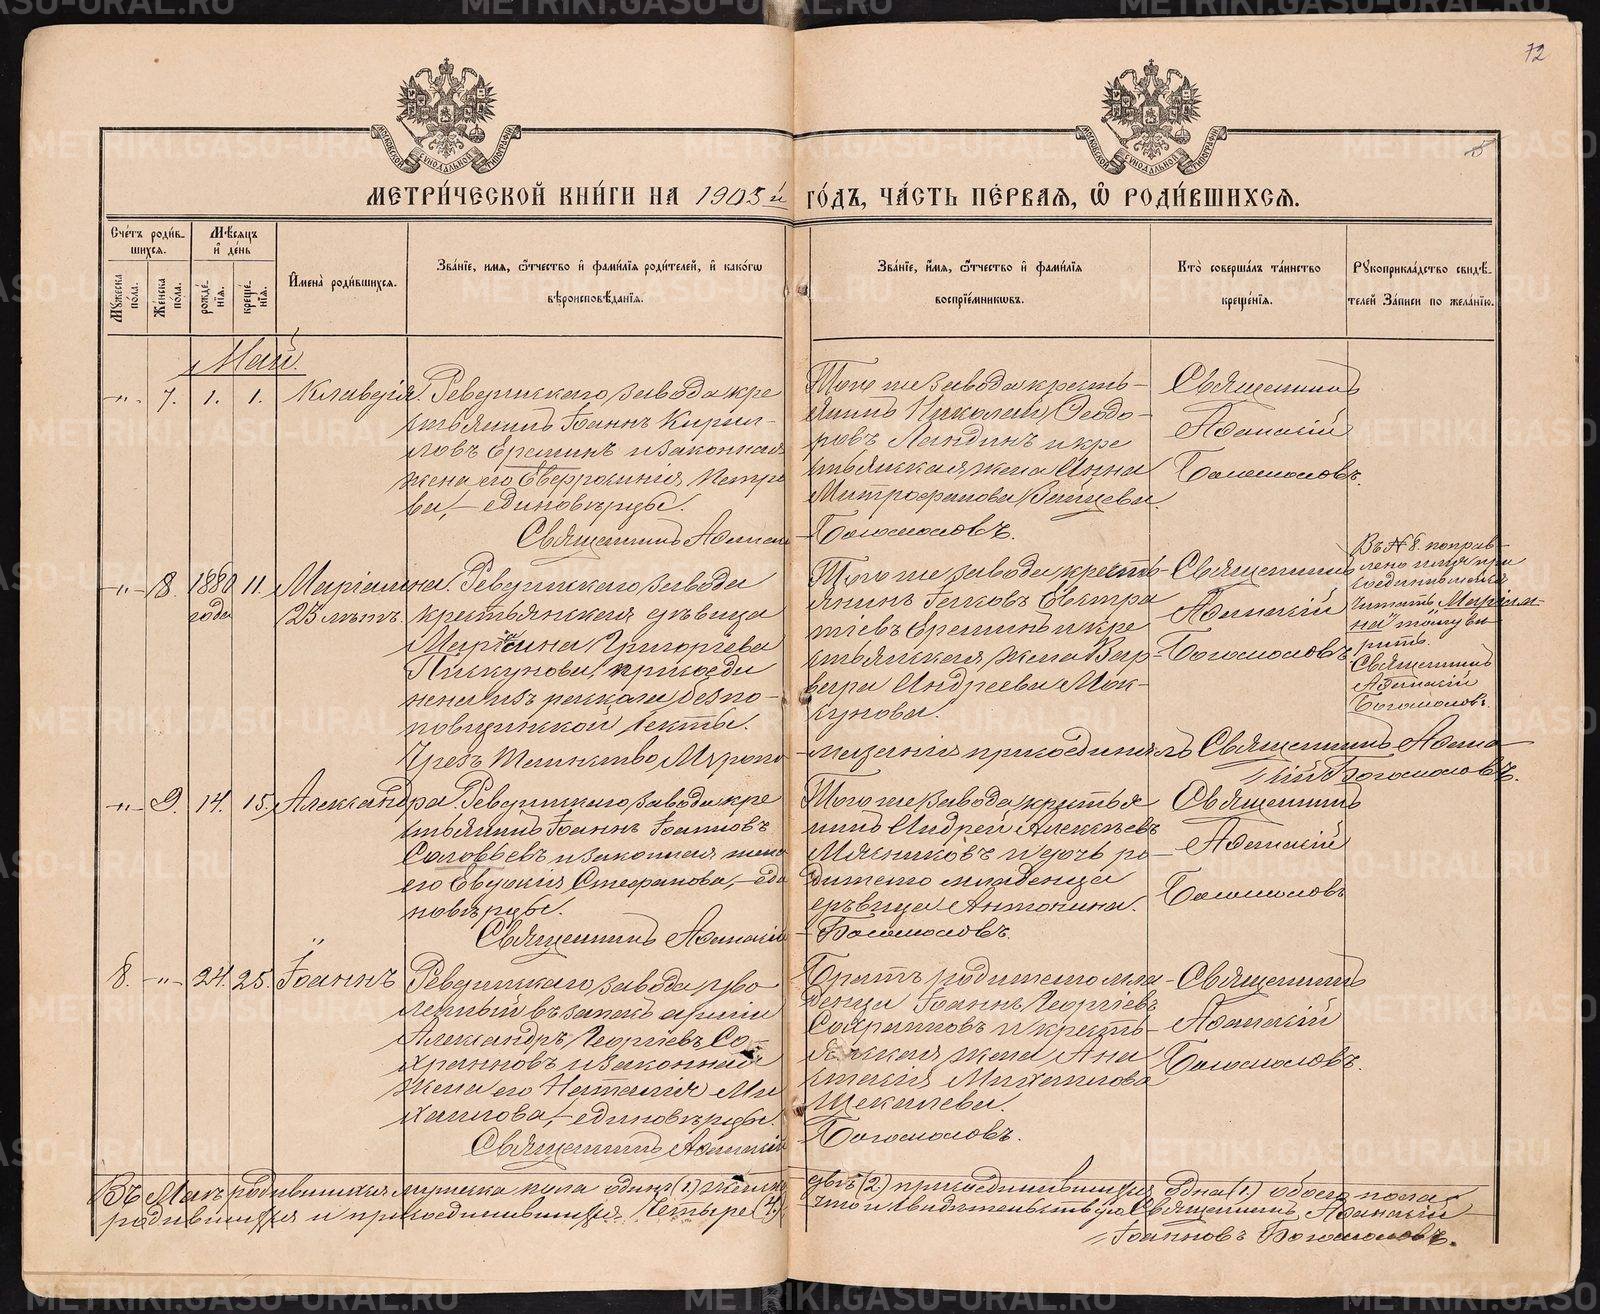 72
МЕТРИ́ЧЕСКОЙ КНИ́ГИ НА 1903й ГО́ДЪ, ЧА́СТЬ ПЕ́РВАЯ, Ѽ РОДИ́ВШИХСЯ.
Сче́тъ роди́вшихся.
Мѣ́сяцъ и де́нь
Мꙋ́жеска по́ла.
Же́нска по́ла.
рожде́нїѧ.
креще́нїѧ.
Имена̀ роди́вшихся.
Зва́нїе, имѧ, ѻ҆тчество и҆ фами́лїѧ роди́телей, и҆ како́гѡ вѣроисповѣ́данїѧ.
Зва́нїе, и́мѧ, ѻ҆тчество и҆ фами́лїѧ воспрїе́мникѡвъ.
Кто̀ соверша́лъ та́инство креще́нїѧ.
Рꙋкоприкла́дство свидѣ́телей За́писи по жела́нїю.
Май.
-„- 7. 1. 1. Клавдія
Ревдинскаго завода кре
стьянинъ Іоаннъ Кирил-
ловъ Ереминъ и законная
жена его Евфросинія Петро
ва, – единовѣрцы.
Священникъ Афанасій
Того же завода кресть-
янинъ Николай Ѳеодо-
ровъ Ландинъ и кре
стьянская жена Анна
Митрофанова Зайцева.
Богомоловъ.
Священникъ
Афанасій
Богомоловъ.
-„- 8. 1880 года 11. Маріамна 23 лѣтъ.
Ревдинскаго завода
крестьянская дѣвица
Маріамна Григорьева
Пискунова, присоеди
нена изъ раскола безпо-
повщинской секты.
Чрезъ Таинство Мѵропо
Того же завода кресть-
янинъ Іаковъ Евстра
тіевъ Ереминъ и кре
стьянская жена Вар-
вара Андреева Мок-
кунова.
мазанія присоединялъ Священникъ Афана
сій Богомоловъ.
Священникъ
Афанасій
Богомоловъ
Въ № 8. поправ-
лено имя при
соединившейся
читать „Маріам-
на" тому вѣ
рить.
Священникъ
Афанасій
Богомоловъ.
-„- 9. 14. 15. Александра.
Ревдинскаго завода кре
стьянинъ Іоаннъ Іоанновъ
Соловьевъ и законная жена
его Евдокія Стефанова, – еди
новѣрцы.
Священникъ Афанасій
Того же завода крестья-
нинъ Андрей Алексѣевъ
Мясниковъ и дочь ро-
дителю младенца
дѣвица Антонина.
Богомоловъ.
Священникъ
Афанасій
Богомоловъ
8. -„- 24. 25. Іоаннъ
Ревдинскаго завода уво
ленный въ запасъ арміи
Александръ Георгіевъ Со-
хранновъ и законная
жена его Наталія Ми
хаилова, – единовѣрцы.
Священникъ Афанасій
Братъ родителю мла-
денца Іоаннъ Георгіевъ
Сохранновъ и кресть-
янская жена Ана
стасія Михаилова
Щекалева.
Богомоловъ.
Священникъ
Афанасій
Богомоловъ.
Въ Маѣ родившихся мужеска пола одинъ (1.) женска двѣ (2) присоединившихся одна (1.) обоего пола
родившихся и присоединившихся Четыре (4.) что и свидѣтельствую Священникъ Афанасій
Іоанновъ Богомоловъ.
METRIKI.GASO-URAL.RU